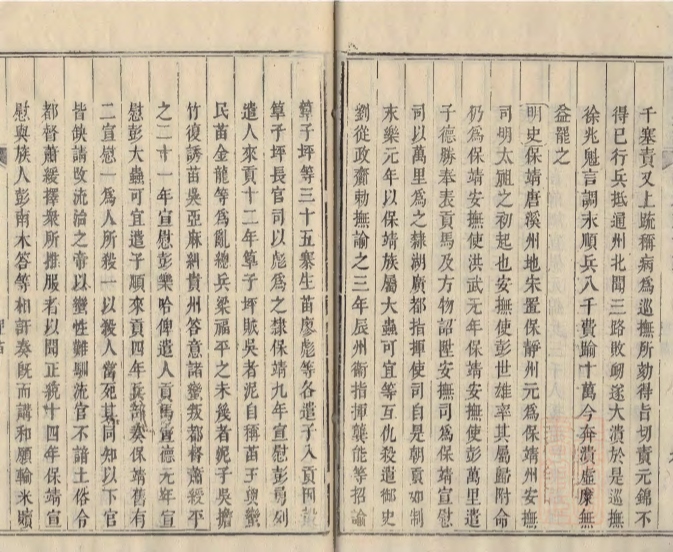 千塞責又上䟽稱病爲巡撫所劾得旨切責元錦不
得巳行兵抵通州北聞三路敗衂遂大潰於是巡撫
徐兆魁言調永順兵八千費踰十萬今奔潰虛糜無
益罷之
明史保靖唐溪州地宋置保靜州元爲保靖州安撫
司明太祖之初起也安撫使彭世雄率其屬歸附命
仍爲保靖安撫使洪武元年保靖安撫使彭萬里遣
子德勝奉表貢馬及方物詔陞安撫司爲保靖宣慰
司以萬里爲之隸湖廣都指揮使司自是朝貢如制
永樂元年以保靖族屬大蟲可宜等互仇殺遣御史
劉從政齎勅撫諭之三年辰州衛指揮龔能等招諭
筸子坪等三十五寨生苗廖彪等各遣子入貢因設
筸子坪長官司以彪爲之隸保靖九年宣慰彭勇烈
遣人來貢十二年筸子坪賊吳者泥自稱苗王與蠻
民苗金龍等爲亂總兵梁福平之未幾者泥子吳擔
竹復誘苗吳亞麻糾貴州答意諸蠻叛都督蕭綬平
之二十一年宣慰彭藥哈俾遣人貢馬宣德元年宣
慰彭大蟲可宜遣子順來貢四年兵部奏保靖舊有
二宣慰一爲人所殺一以殺人當死其同知以下官
皆缺請改流治之帝以蠻性難馴流官不諳土俗令
都督蕭綬擇衆所推服者以聞正統十四年保靖宣
慰與族人彭南木答等相訐奏既而講和願輸米贖